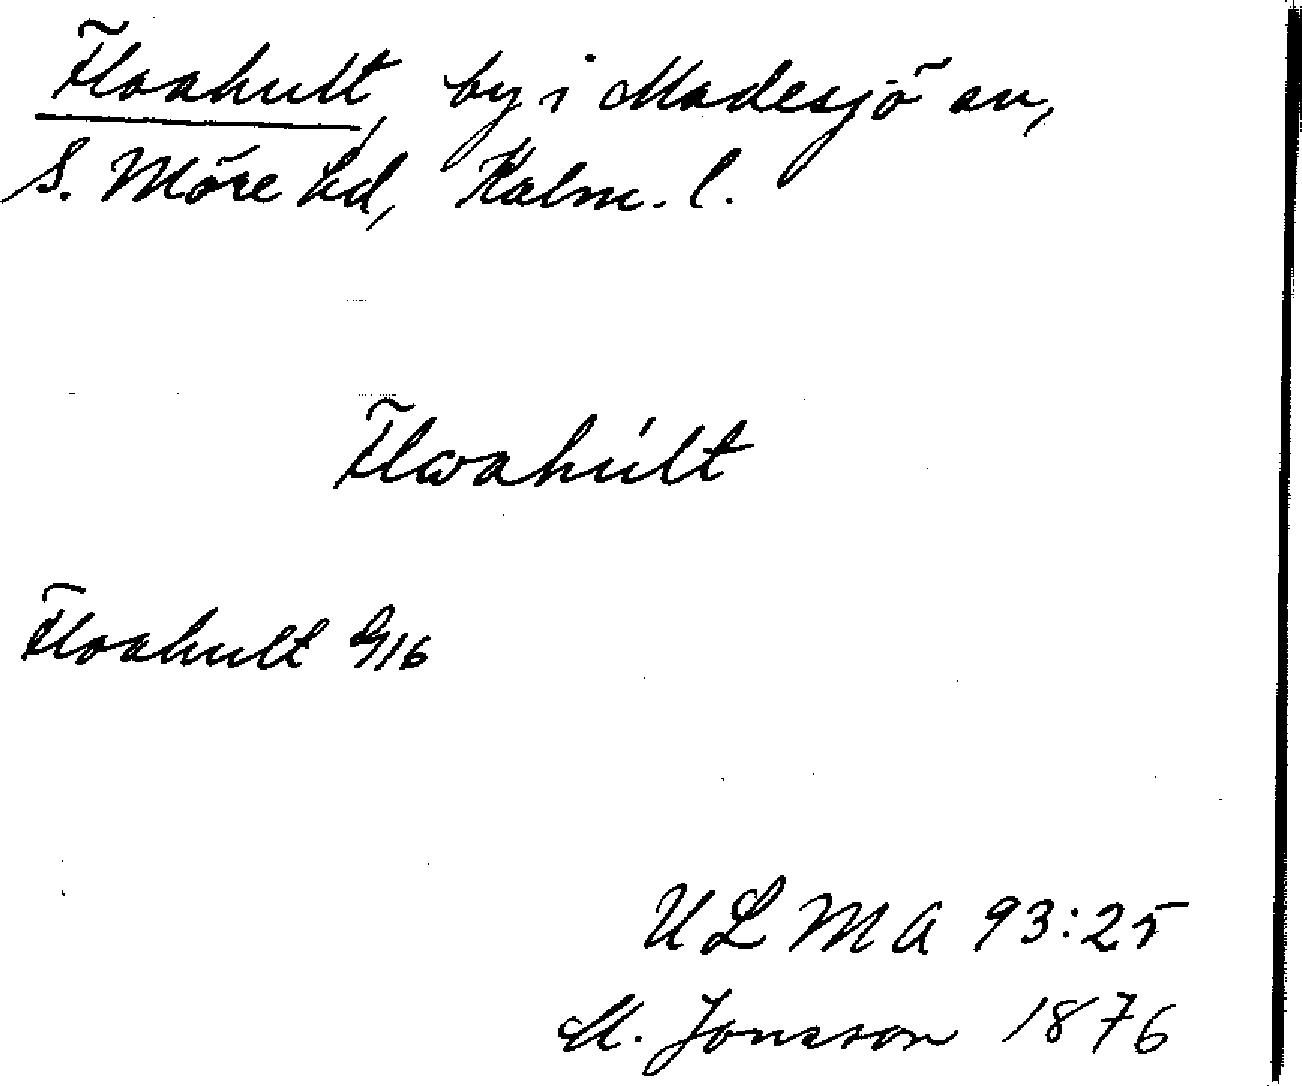 Floahult, by i Madesjö sn,
S. Möre hd, Kalm. l.
Flωahúlt
Floahult G16
ULMA 93:25
M. Jonsson 1876